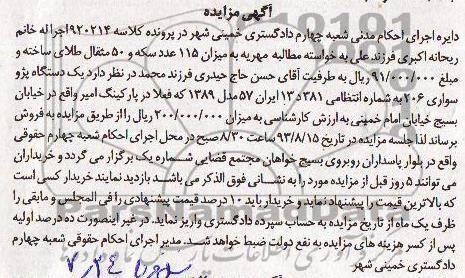 آگهی مزایده
دایره اجرای احکام مدنی شعبه چهارم دادگستری خمینی شهر در پرونده کلاسه ۹۲۰۲۱۴ اجرا له خانم
ریحانه اکبری فرزند علی به خواسته مطالبه مهریه به میزان ۱۱۵ عدد سکه و ۵۰ مثقال طلای ساخته و
مبلغ ۹۱/۰۰۰/۰۰۰ ریال به طرفیت آقای حسن حاج حیدری فرزند محمد در نظر دارد یک دستگاه پژو
سواری ۲۰۶ به شماره انتظامی ۳۸۱ د ۱۳ ایران ۵۷ مدل ۱۳۸۹ که فعلا در پارکینگ امیر واقع در خیابان
بسیج خیابان امام خمینی به ارزش کارشناسی به میزان ۲۰۰/۰۰۰/۰۰۰ ریال را از طریق مزایده به فروش
برساند لذا جلسه مزایده در تاریخ ۹۳/۸/۱۵ ساعت ۸/۳۰ صبح در محل اجرای احکام شعبه چهارم حقوقی
واقع در بلوار پاسداران روبروی بسیج خواهان مجتمع قضایی شماره یک برگزار می گردد و خریداران
می توانند ۵ روز قبل از مزایده مورد را به نشانی فوق الذکر می باشد بازدید نمایند خریدار کسی است
که بالاترین قیمت را پیشنهاد نماید و خریدار باید ۱۰ درصد قیمت پیشنهادی را فی المجلس و مابقی را
ظرف یک ماه از تاریخ مزایده به حساب سپرده دادگستری واریز نماید. در غیر اینصورت ده درصد اولیه
پس از کسر هزینه های مزایده به نفع دولت ضبط خواهد شد. مدیر اجرای احکام حقوقی شعبه چهارم
دادگستری خمینی شهر